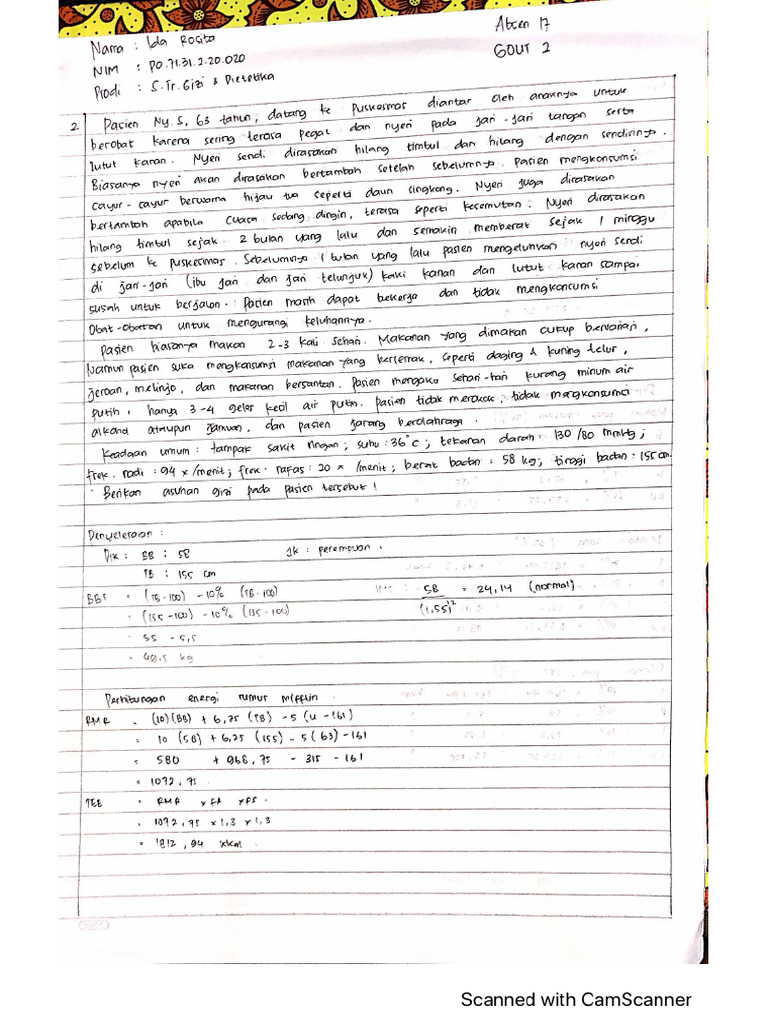 Nama : Ida Rosita
Absen 17
NIM : PO.71.31.2.20.020
GOUT 2
Prodi : S.Tr.Gizi & Dietetika
2. Pasien Ny. S, 63 tahun, datang ke Puskesmas diantar oleh anaknya untuk
berobat karena sering terasa pegal dan nyeri pada jari-jari tangan serta
lutut kanan. Nyeri sendi dirasakan hilang timbul dan hilang dengan sendirinya.
Biasanya nyeri akan dirasakan bertambah setelah sebelumnya pasien mengkonsumsi
sayur-sayur berwarna hijau tua seperti daun singkong. Nyeri juga dirasakan
bertambah apabila cuaca sedang dingin, terasa seperti kesemutan. Nyeri dirasakan
hilang timbul sejak 2 bulan yang lalu dan semakin memberat sejak 1 minggu
sebelum ke puskesmas. Sebelumnya 1 bulan yang lalu pasien mengeluhkan nyeri sendi
di jari-jari (ibu jari dan jari telunjuk) kaki kanan dan lutut kanan sampai
susah untuk berjalan. Pasien masih dapat bekerja dan tidak mengkonsumsi
obat-obatan untuk mengurangi keluhannya.
Pasien biasanya makan 2-3 kali sehari. Makanan yang dimakan cukup bervariasi,
Namun pasien suka mengkonsumsi makanan yang berlemak, seperti daging & kuning telur,
jeroan, melinjo, dan makanan bersantan. Pasien mengaku sehari-hari kurang minum air
putih, hanya 3-4 gelas kecil air putih. Pasien tidak merokok, tidak mengkonsumsi
alkohol ataupun jamuan, dan pasien jarang berolahraga.
Keadaan umum : tampak sakit ringan ; suhu : 36°c ; tekanan darah : 130/80 mmHg ;
frek. nadi : 94 x/menit ; frek. nafas : 20 x /menit ; berat badan : 58 kg ; tinggi badan : 155 cm.
Berikan asuhan gizi pada pasien tersebut !
Penyelesaian :
Dik : BB : 58 Jk : perempuan .
TB : 155 cm
BBI = (TB-100) - 10% (TB-100) 58 = 24,14 (normal)
= (155-100) - 10% (155-100) (1.55)²
= 55 - 5,5
= 49,5 kg
Perhitungan energi rumus mifflin
RMR = (10)(BB) + 6,25 (TB) - 5 (u -161)
= 10 (58) + 6,25 (155) - 5 (63) -161
= 580 + 968,75 - 315 - 161
= 1072,75
TEE = RMR x FA x FS
= 1072,75 x 1,3 x 1,3
= 1812,94 kkal
Scanned with CamScanner